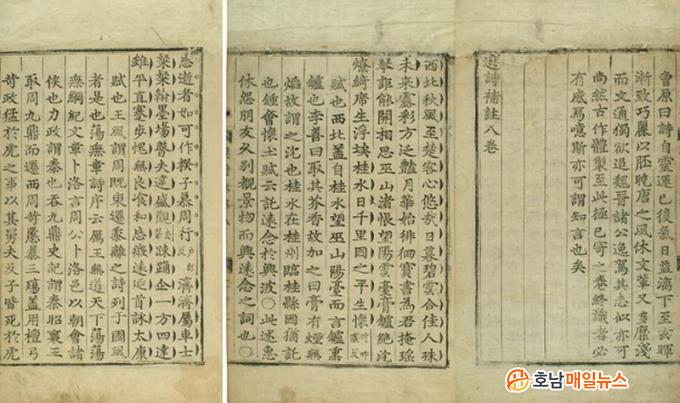 曾原曰詩自靈運已後氣日益漓下至玄暉
漸致巧麗以胚晩唐之風休文輩又多靡淺
而文通獨欲追魏晉諸公逸駕其志似亦可
尚然古作體製至此極已寄之卷終識者必
有感焉噫斯亦可謂知言也矣
選詩補註八卷
西北秋風至楚客心悠哉日暮碧雲合佳人殊
未來露彩方泛艶月華始徘徊寶書為君掩瑤
琴詎能開相思巫山渚悵望陽雲臺膏鑪絶沈
燎綺席生浮埃桂水日千里因之平生懷
賦也西北盖自桂水望巫山陽臺而言鑪熏
鑪也李善曰取其芬香故加之曰膏有煙無
焰故謂之沈也桂水在桂州臨桂縣因猶託
也鍾會懷士賦云託遠念於興波○此述惠
休怨朋友久別覩景物而興遠念之詞也○
志逝者如可作揆子慕周行戶郎反濟濟屬車士
粲粲翰墨場瞽夫違盛觀踈踊企一方四達
雖平直蹇步愧無良飡和忘微遠延首詠太康
賦也王風謂周旣東遷黍離之詩列于國風
者是也蕩無章詩序云厲王無道天下蕩蕩
無綱紀文章卜洛言周公卜洛邑以朝會諸
侯也力政謂秦也呑九鼎史記謂秦昭襄王
取周九鼎而遷西周苛慝暴三殤盖用檀弓
苛政猛於虎之事以其舅夫及子皆死於虎
호남매일뉴스